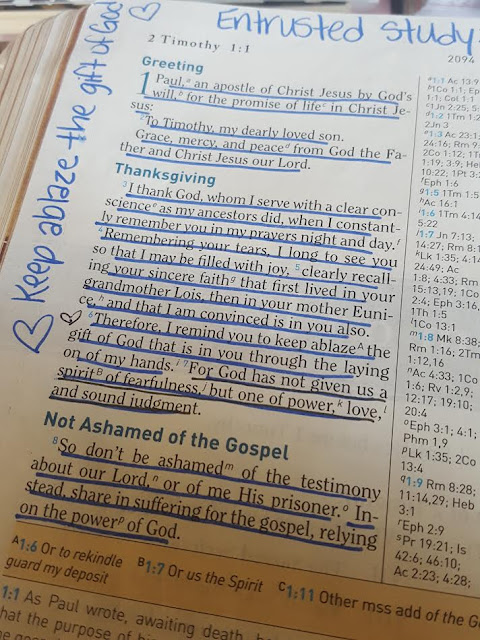 Entrusted Study:
Keep ablaze the gift of God
2 Timothy 1:1
2094
Greeting
1 Paul,a an apostle of Christ Jesus by God's
will,b for the promise of lifec in Christ Je-
sus:
2 To Timothy, my dearly loved son.
Grace, mercy, and peaced from God the Fa-
ther and Christ Jesus our Lord.
Thanksgiving
3 I thank God, whom I serve with a clear con-
sciencee as my ancestors did, when I constant-
ly remember you in my prayers night and day.f
4 Remembering your tears, I long to see you
so that I may be filled with joy, 5 clearly recall-
ing your sincere faithg that first lived in your
grandmother Lois, then in your mother Euni-
ce,h and that I am convinced is in you also.
6 Therefore, I remind you to keep ablazeA the
gift of God that is in you through the laying
on of my hands.i 7 For God has not given us a
spiritB of fearfulness,j but one of power,k love,l
and sound judgment.
Not Ashamed of the Gospel
8 So don't be ashamedm of the testimony
about our Lord,n or of me His prisoner.o In-
stead, share in suffering for the gospel, relying
on the powerp of God.
A1:6 Or to rekindle
guard my deposit
B1:7 Or us the Spirit
C1:11 Other mss add of the G
1:1 As Paul wrote, awaiting death,
hat the purpose of
a1:1 Ac 13:9
b1Co 1:1; Ep
1:1; Col 1:1
c1Jn 2:25; 5:
d1:2 1Tm 1:2
2Jn 3
e1:3 Ac 23:1;
24:16; Rm 9:
2Co 1:12; 1T
1:19; 3:9; He
10:22; 1Pt 3:
fEph 1:6
g1:5 1Tm 1:5
hAc 16:1
i1:6 1Tm 4:14
5:22
j1:7 Jn 7:13;
14:27; Rm 8:1
kLk 1:35; 4:14
24:49; Ac
1:8; 4:33; Rm
15:13,19; 1Co
2:4; Eph 3:16,
1Th 1:5
l1Co 13:1
m1:8 Mk 8:38;
Rm 1:16; 2Tm
1:12,16
nAc 4:33; 1Co
1:6; Rv 1:2,9;
12:17; 19:10;
20:4
oEph 3:1; 4:1;
Phm 1,9
pLk 1:35; 2Co
13:4
q1:9 Rm 8:28;
11:14,29; Heb
3:1
rEph 2:9
sPr 19:21; Is
42:6; 46:10;
Ac 2:23; 4:28;